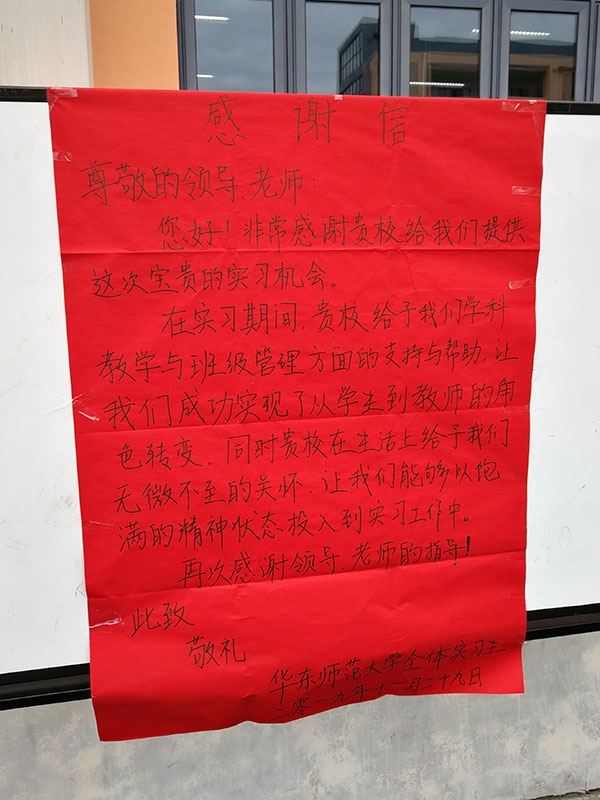 感谢信
尊敬的领导、老师:
您好!非常感谢贵校给我们提供
这次宝贵的实习机会。
在实习期间,贵校给予我们学科
教学与班级管理方面的支持与帮助,让
我们成功实现了从学生到教师的角
色转变。同时贵校在生活上给予我们
无微不至的关怀,让我们能够以饱
满的精神状态投入到实习工作中。
再次感谢领导、老师的指导!
此致
敬礼
华东师范大学全体实习生
二零一九年十一月二十九日